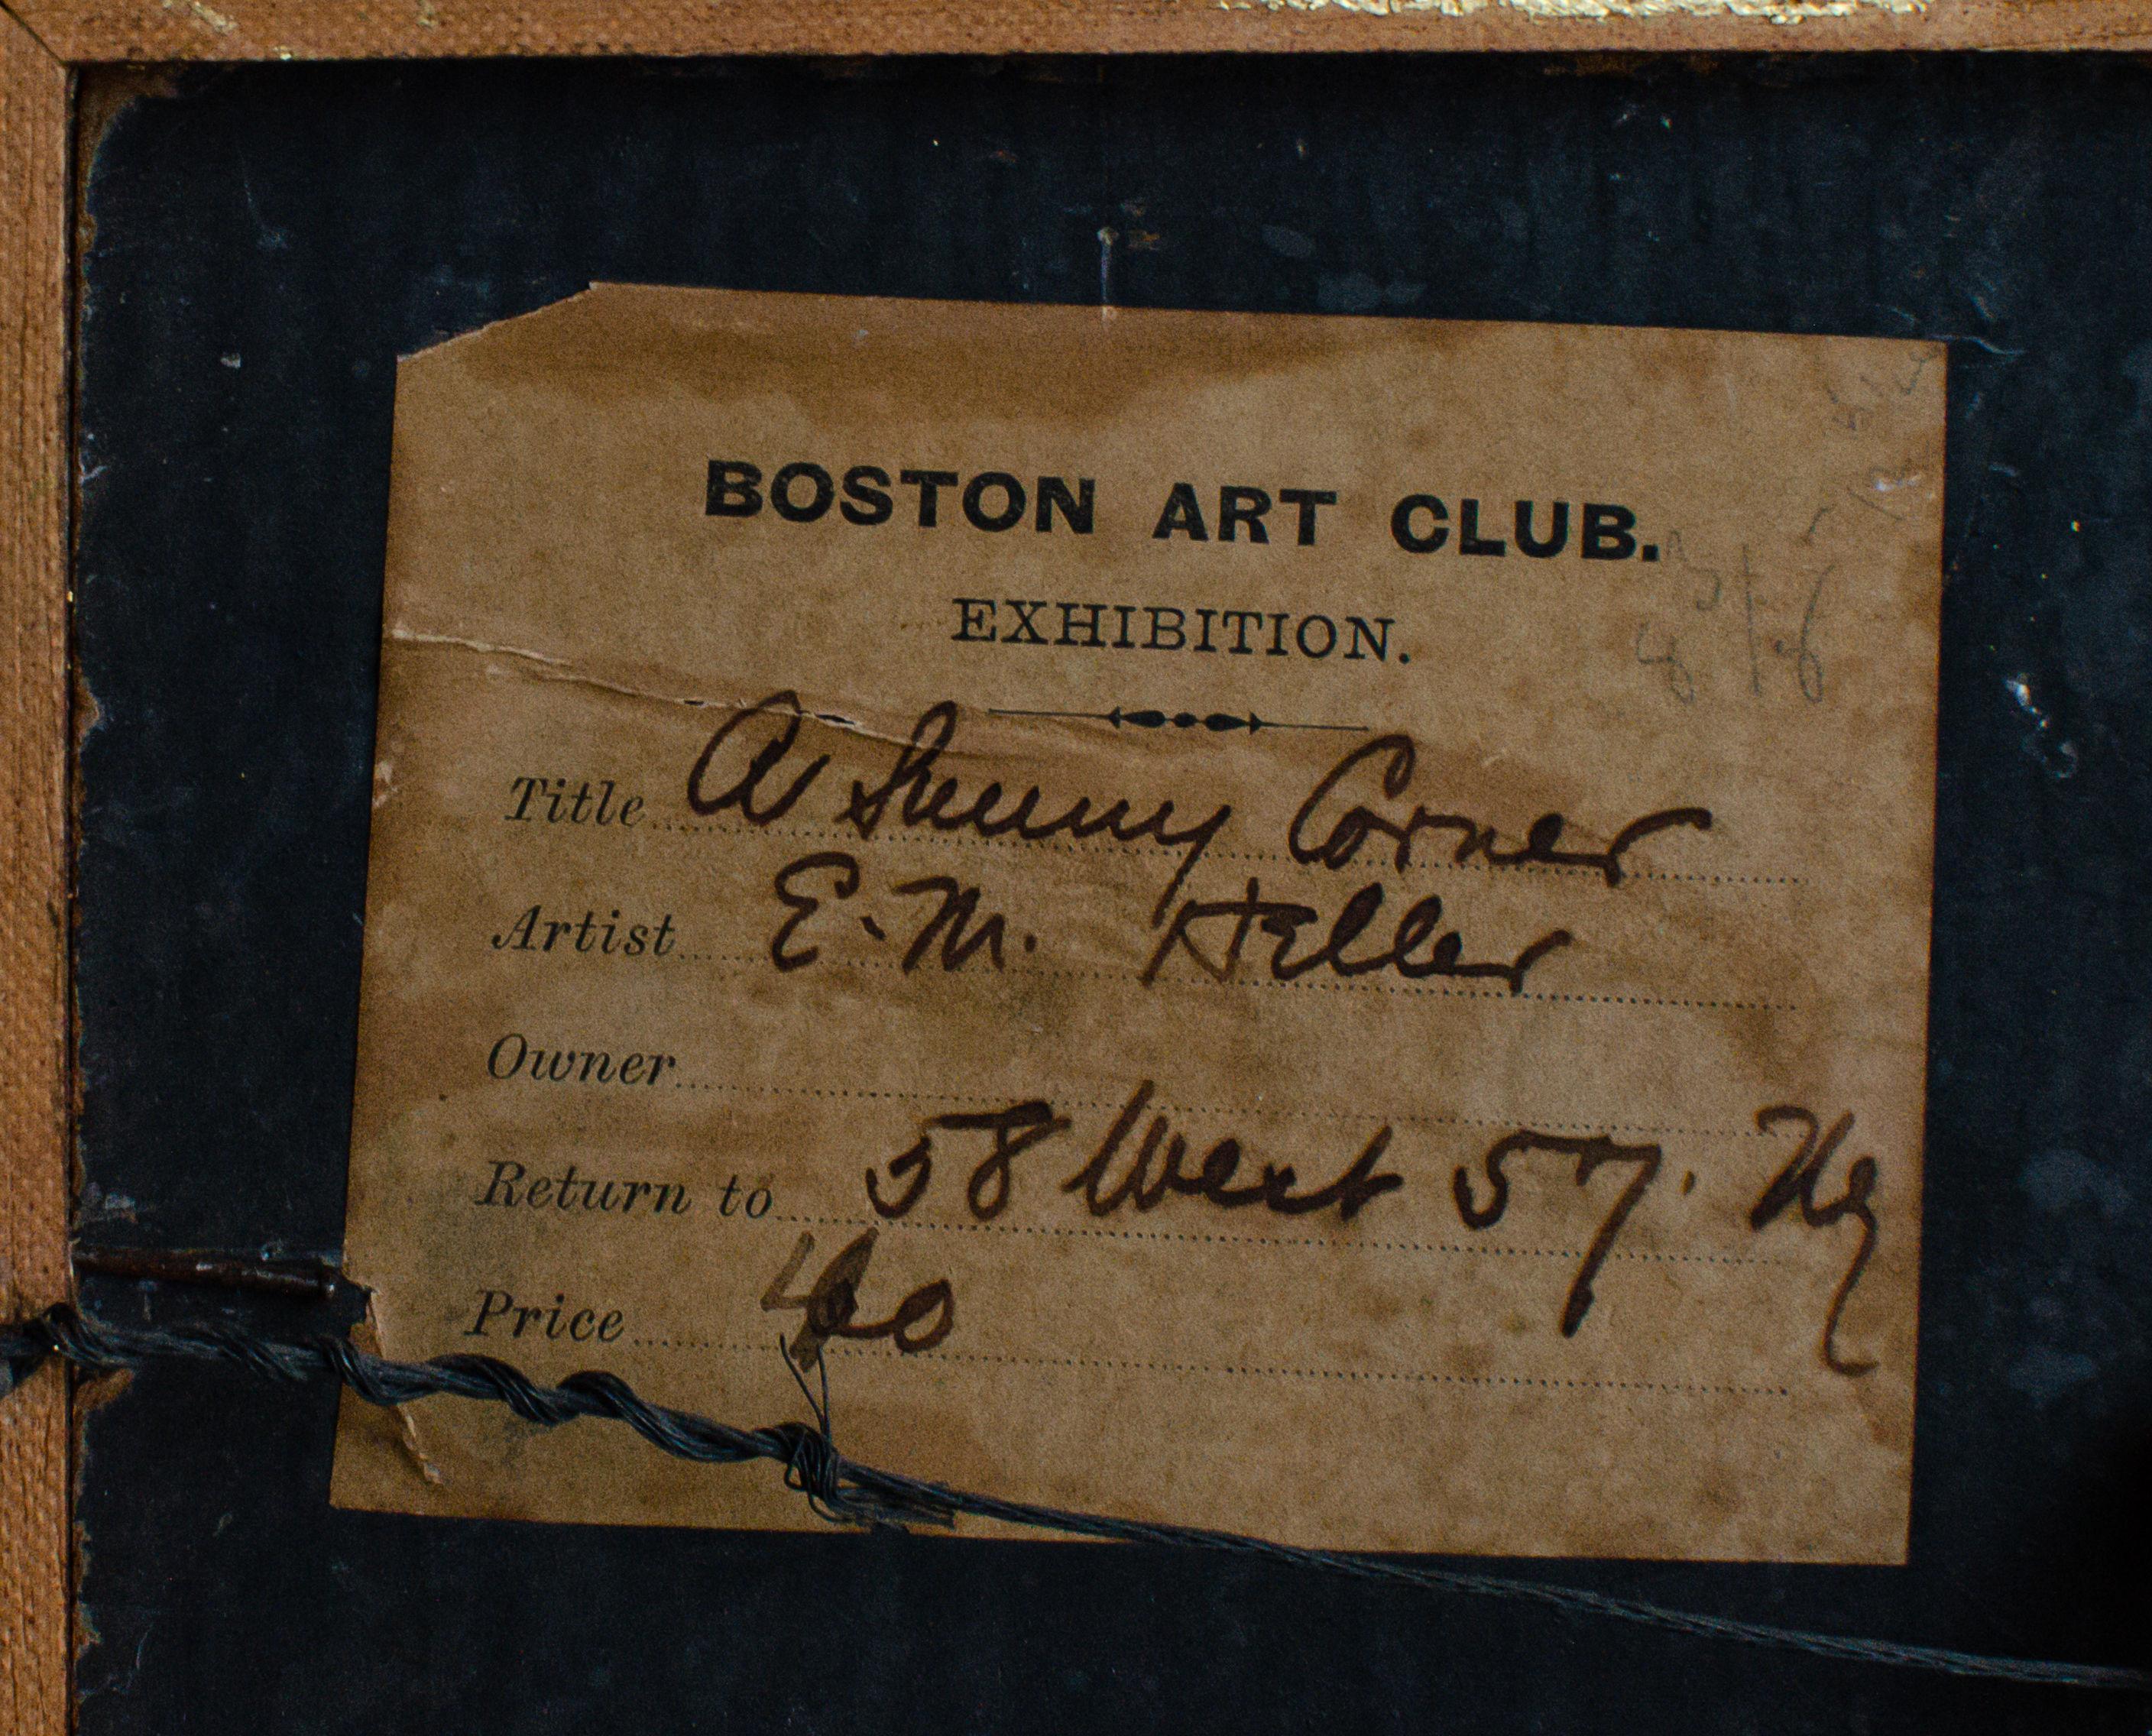 BOSTON ART CLUB.
EXHIBITION.
Title A Sunny Corner
Artist E. M. Heller
Owner
Return to 58 West 57. Ny
Price